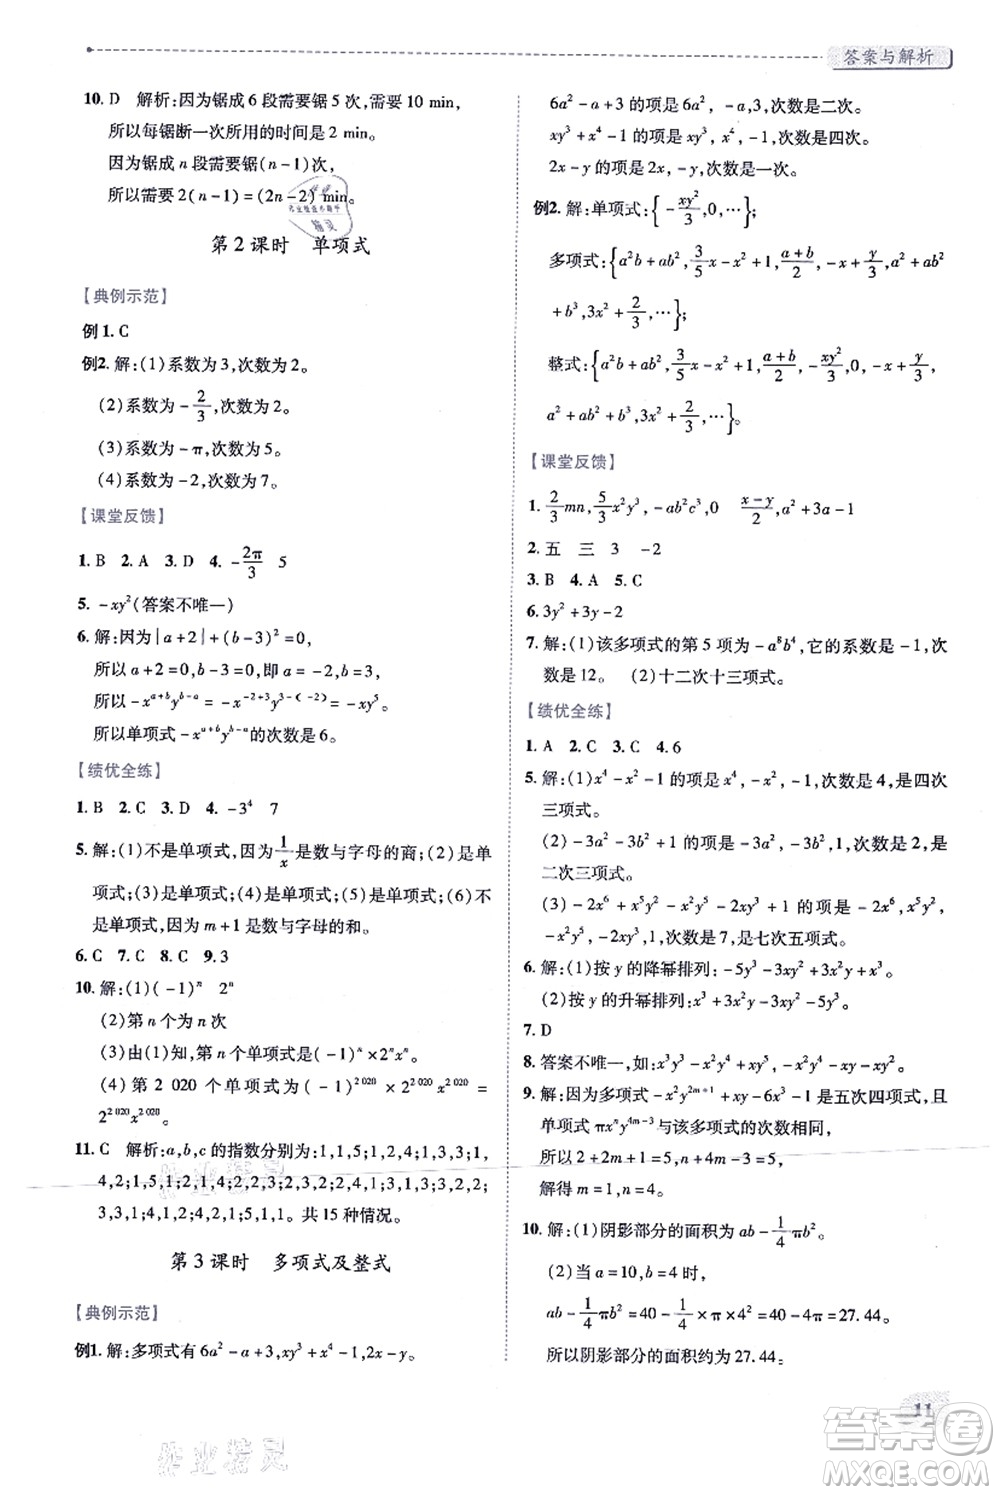 答案与解析
10. D 解析:因为锯成6段需要锯5次,需要10 min,
所以每锯断一次所用的时间是2 min。
因为锯成n段需要锯(n-1)次,
所以需要2(n-1)=(2n-2) min。
第2课时 单项式
【典例示范】
例1. C
例2. 解:(1)系数为3,次数为2。
(2)系数为-2/3,次数为2。
(3)系数为-π,次数为5。
(4)系数为-2,次数为7。
【课堂反馈】
1. B 2. A 3. D 4. -2π/3 5
5. -xy²(答案不唯一)
6. 解:因为|a+2|+(b-3)²=0,
所以a+2=0,b-3=0,即a=-2,b=3,
所以-x^(a+b)y^(b-a)=-x^(-2+3)y^(3-(-2))=-xy⁵,
所以单项式-x^(a+b)y^(b-a)的次数是6。
【绩优全练】
1. B 2. C 3. D 4. -3⁴ 7
5. 解:(1)不是单项式,因为1/x是数与字母的商;(2)是单
项式;(3)是单项式;(4)是单项式;(5)是单项式;(6)不
是单项式,因为m+1是数与字母的和。
6. C 7. C 8. C 9. 3
10. 解:(1)(-1)ⁿ 2ⁿ
(2)第n个为n次
(3)由(1)知,第n个单项式是(-1)ⁿ×2ⁿxⁿ;
(4)第2 020个单项式是(-1)^(2 020)×2^(2 020)x^(2 020)=
2^(2 020)x^(2 020)。
11. C 解析:a,b,c的指数分别为:1,1,5;1,2,4;1,3,3;1,
4,2;1,5,1;2,1,4;2,2,3;2,3,2;2,4,1;3,1,3;3,2,2;
3,3,1;4,1,2;4,2,1;5,1,1。共15种情况。
第3课时 多项式及整式
【典例示范】
例1. 解:多项式有6a²-a+3,xy³+x⁴-1,2x-y。
6a²-a+3的项是6a²,-a,3,次数是二次。
xy³+x⁴-1的项是xy³,x⁴,-1,次数是四次。
2x-y的项是2x,-y,次数是一次。
例2. 解:单项式:{-xy²/3,0,…};
多项式:{a²b+ab²,3/5x-x²+1,(a+b)/2,-x+y/3,a²+ab²
+b³,x²+2/3,…};
整式:{a²b+ab²,3/5x-x²+1,(a+b)/2,-xy²/3,0,-x+y/3,
a²+ab²+b³,x²+2/3,…}。
【课堂反馈】
1. 2/3mn,5/3x²y³,-ab²c³,0 (x-y)/2,a²+3a-1
2. 五 三 3 -2
3. B 4. A 5. C
6. 3y²+3y-2
7. 解:(1)该多项式的第5项为-a⁸b⁴,它的系数是-1,次
数是12。 (2)十二次十三项式。
【绩优全练】
1. A 2. C 3. C 4. 6
5. 解:(1)x⁴-x²-1的项是x⁴,-x²,-1,次数是4,是四次
三项式。
(2)-3a²-3b²+1的项是-3a²,-3b²,1,次数是2,是
二次三项式。
(3)-2x⁶+x⁵y²-x²y⁵-2xy³+1的项是-2x⁶,x⁵y²,
-x²y⁵,-2xy³,1,次数是7,是七次五项式。
6. 解:(1)按y的降幂排列:-5y³-3xy²+3x²y+x³
(2)按y的升幂排列:x³+3x²y-3xy²-5y³
7. D
8. 答案不唯一,如:x³y³-x²y⁴+xy⁵,-x²y⁴-xy-xy⁵
9. 解:因为多项式-x²y^(2m+1)+xy-6x³-1是五次四项式,且
单项式πxⁿy^(4m-3)与该多项式的次数相同,
所以2+2m+1=5,n+4m-3=5,
解得m=1,n=4。
10. 解:(1)阴影部分的面积为ab-1/4πb²;
(2)当a=10,b=4时,
ab-1/4πb²=40-1/4×π×4²=40-4π≈27.44。
所以阴影部分的面积约为27.44。
11
答案卷
MXQE.COM
作业精灵